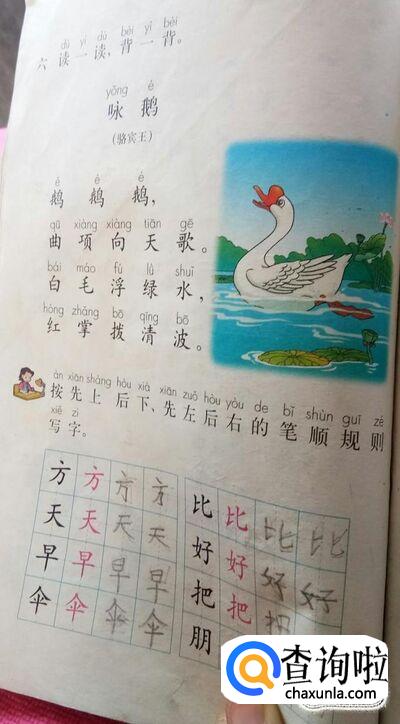 dú yī dú bèi yí bèi
六 读一读，背一背。
yǒng é
咏 鹅
(骆宾王)
é é é
鹅 鹅 鹅，
qū xiàng xiàng tiān gē
曲 项 向 天 歌。
bái máo fú lǜ shuǐ
白 毛 浮 绿 水，
hóng zhǎng bō qīng bō
红 掌 拨 清 波。
àn xiān shàng hòu xià xiān zuǒ hòu yòu de bǐ shùn guī zé
按先上后下、先左后右的笔顺规则
xiě zì
写字。
方 方 方 方
天 天 天 天
早 早 早 早
伞 伞 伞 伞
比 比 比 比
好 好 好 好
把 把 把
朋
查询啦
chaxunla.com